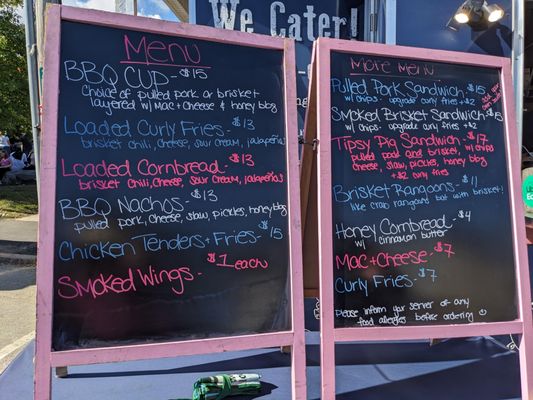 We Cater!
Menu
BBQ CUP - $15
Choice of pulled pork or brisket
layered w/ Mac + Cheese & honey bbq
Loaded Curly Fries - $13
brisket chili, cheese, sour cream, jalapeños
Loaded Cornbread - $13
brisket chili, cheese, sour cream, jalapeños
BBQ Nachos - $13
pulled pork, cheese, slaw, pickles, honey bbq
Chicken Tenders + Fries - $15
Smoked Wings - $1 each
More Menu
Pulled Pork Sandwich - $15
w/ chips - upgrade curly fries + $2
Smoked Brisket Sandwich - $15
w/ chips - upgrade curly fries + $2
Tipsy Pig Sandwich - $17
pulled pork and brisket, chips,
cheese, slaw, pickles, honey bbq
+ $2 curly fries
Brisket Rangoons - $11
like crab rangoons but with brisket!
Honey Cornbread - $4
w/ cinnamon butter
Mac + Cheese - $7
Curly Fries - $7
Please inform your server of any
food allergies before ordering